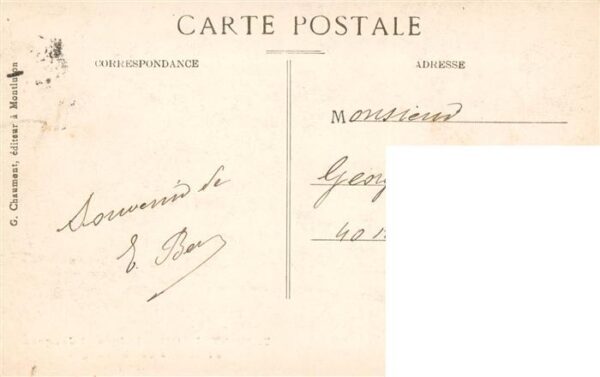 CARTE POSTALE
CORRESPONDANCE
ADRESSE
G. Chaumont, éditeur à Montluçon
Monsieur
Georg
40
Souvenir de
E. Ber